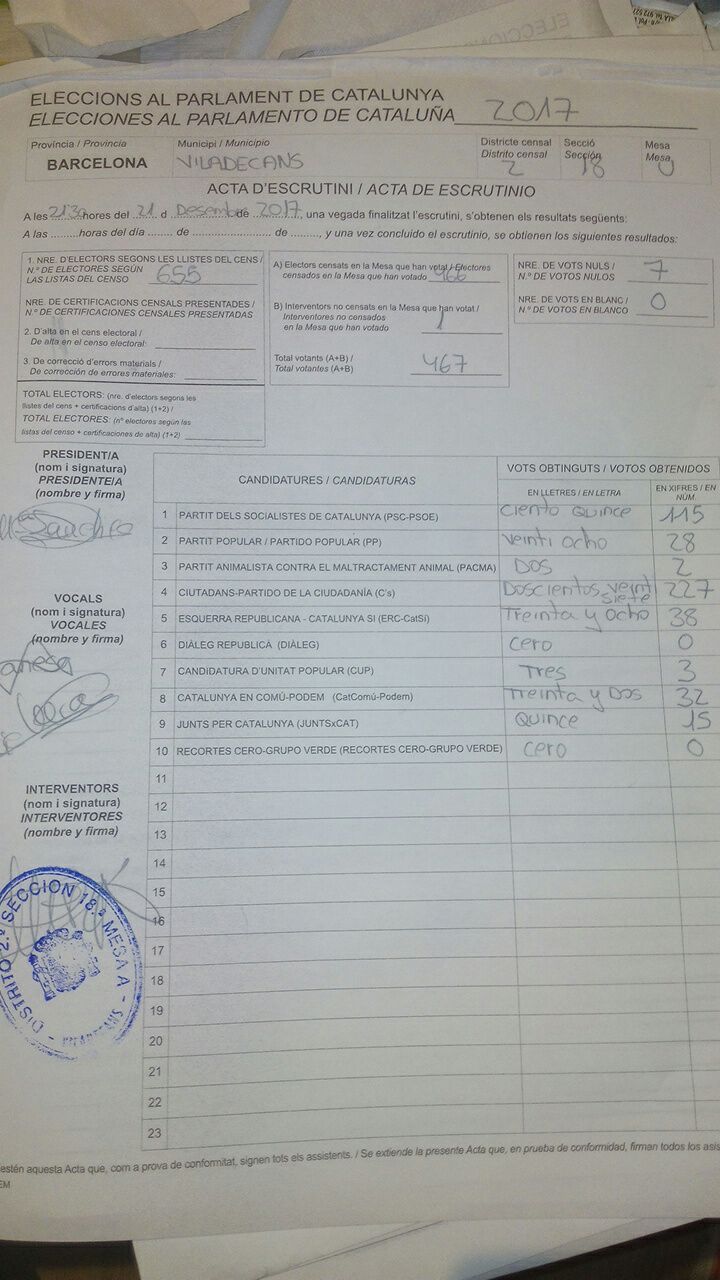 ELECCIONS AL PARLAMENT DE CATALUNYA
ELECCIONES AL PARLAMENTO DE CATALUÑA 2017
Província / Provincia
BARCELONA
Municipi / Municipio
VILADECANS
Districte censal
Distrito censal
2
Secció
Sección
18
Mesa
Mesa
ACTA D'ESCRUTINI / ACTA DE ESCRUTINIO
A les 2130 hores del 21 d Desembre de 2017, una vegada finalitzat l'escrutini, s'obtenen els resultats següents:
A las .........horas del día ...... de ..................... de ........, y una vez concluido el escrutinio, se obtienen los siguientes resultados:
1. NRE. D'ELECTORS SEGONS LES LLISTES DEL CENS /
N.º DE ELECTORES SEGÚN
LAS LISTAS DEL CENSO 655
NRE. DE CERTIFICACIONS CENSALS PRESENTADES /
N.º DE CERTIFICACIONES CENSALES PRESENTADAS
2. D'alta en el cens electoral /
De alta en el censo electoral:
3. De correcció d'errors materials /
De corrección de errores materiales:
TOTAL ELECTORS: (nre. d'electors segons les
llistes del cens + certificacions d'alta) (1+2) /
TOTAL ELECTORES: (nº electores según las
listas del censo + certificaciones de alta) (1+2)
A) Electors censats en la Mesa que han votat / Electores
censados en la Mesa que han votado 466
B) Interventors no censats en la Mesa que han votat /
Interventores no censados
en la Mesa que han votado 1
Total votants (A+B) /
Total votantes (A+B) 467
NRE. DE VOTS NULS /
N.º DE VOTOS NULOS 7
NRE. DE VOTS EN BLANC /
N.º DE VOTOS EN BLANCO 0
PRESIDENT/A
(nom i signatura)
PRESIDENTE/A
(nombre y firma)
VOCALS
(nom i signatura)
VOCALES
(nombre y firma)
INTERVENTORS
(nom i signatura)
INTERVENTORES
(nombre y firma)
DISTRITO 2.º SECCION 18.ª MESA A
CANDIDATURES / CANDIDATURAS
VOTS OBTINGUTS / VOTOS OBTENIDOS
EN LLETRES / EN LETRA
EN XIFRES / EN
NÚM.
1 PARTIT DELS SOCIALISTES DE CATALUNYA (PSC-PSOE) Ciento Quince 115
2 PARTIT POPULAR / PARTIDO POPULAR (PP) Veinti ocho 28
3 PARTIT ANIMALISTA CONTRA EL MALTRACTAMENT ANIMAL (PACMA) DOS 2
4 CIUTADANS-PARTIDO DE LA CIUDADANÍA (C's) Doscientos veint
siete 227
5 ESQUERRA REPUBLICANA - CATALUNYA SÍ (ERC-CatSí) Treinta y Ocho 38
6 DIÀLEG REPUBLICÀ (DIÀLEG) Cero 0
7 CANDIDATURA D'UNITAT POPULAR (CUP) Tres 3
8 CATALUNYA EN COMÚ-PODEM (CatComú-Podem) Treinta y Dos 32
9 JUNTS PER CATALUNYA (JUNTSxCAT) Quince 15
10 RECORTES CERO-GRUPO VERDE (RECORTES CERO-GRUPO VERDE) Cero 0
11
12
13
14
15
16
17
18
19
20
21
22
23
estén aquesta Acta que, com a prova de conformitat, signen tots els assistents. / Se extiende la presente Acta que, en prueba de conformidad, firman todos los asis
EM